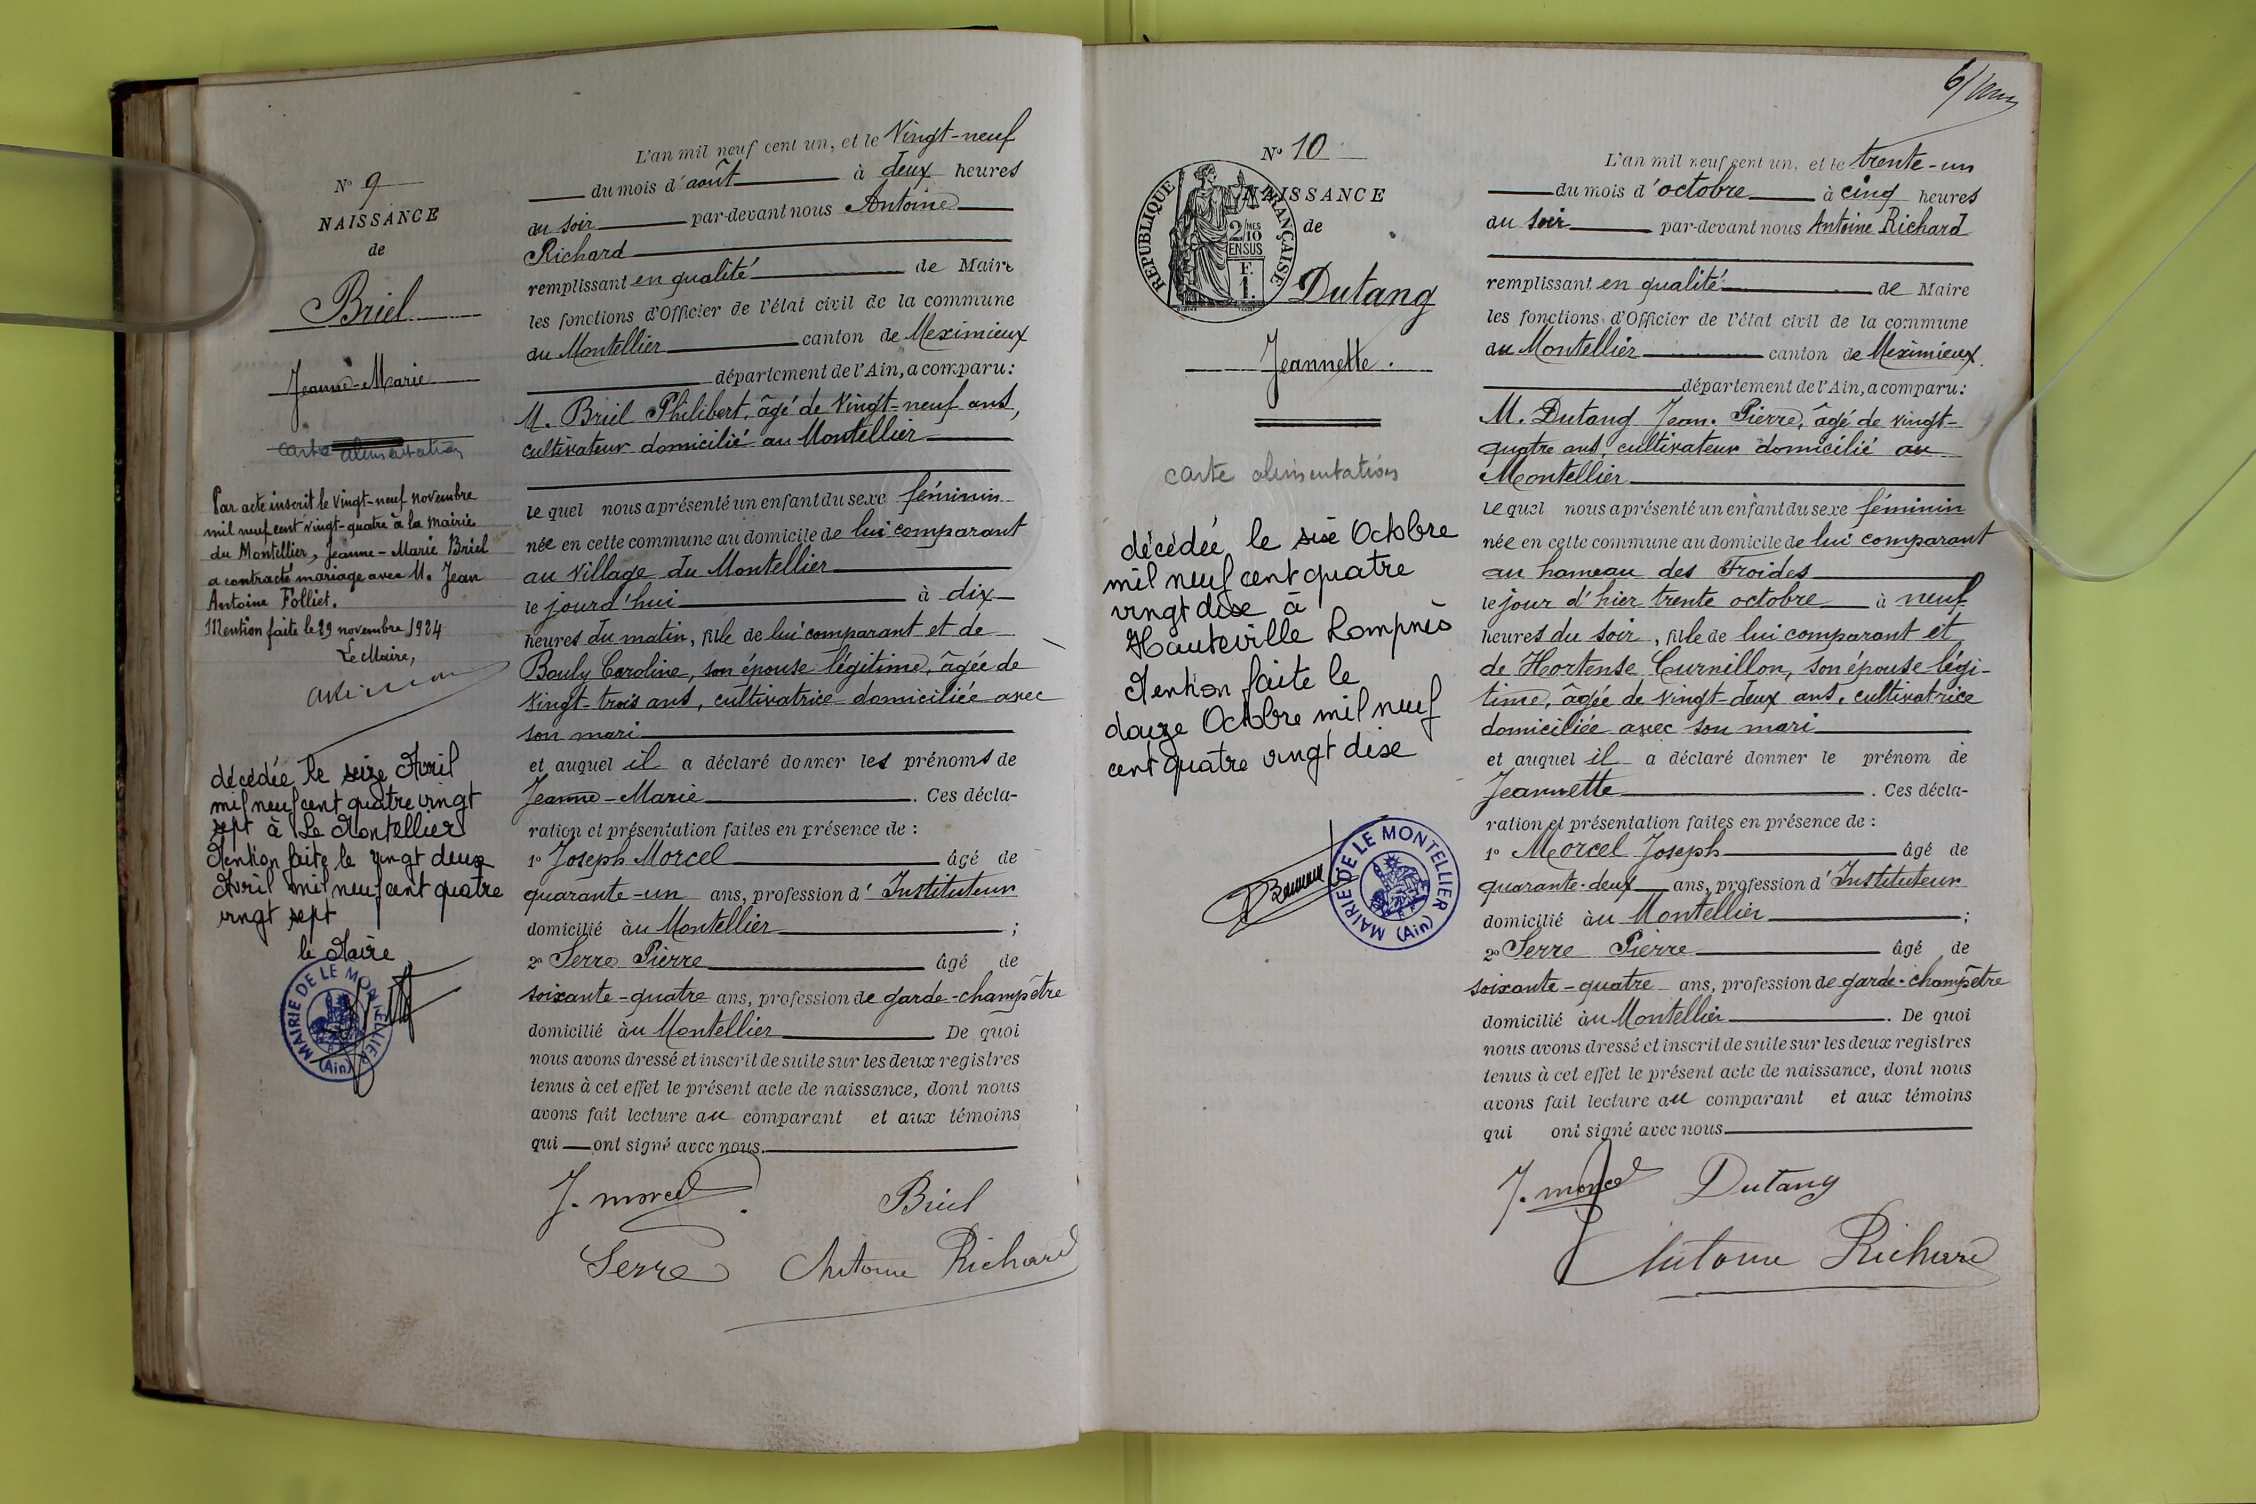 N° 9
NAISSANCE
de
Briel
Jeanne-Marie
carte alimentation
Par acte inscrit le vingt-neuf novembre
mil neuf cent vingt-quatre à la mairie
du Montellier, Jeanne-Marie Briel
a contracté mariage avec M. Jean
Antoine Folliet.
Mention faite le 29 novembre 1924
Le Maire,
décédée le seize Avril
mil neuf cent quatre vingt
sept à Le Montellier
Mention faite le vingt deux
Avril mil neuf cent quatre
vingt sept
le Maire
MAIRIE DE LE MONTELLIER
(Ain)
L'an mil neuf cent un, et le Vingt-neuf
du mois d'août à deux heures
du soir par-devant nous Antoine
Richard
remplissant en qualité de Maire
les fonctions d'Officier de l'état civil de la commune
du Montellier canton de Meximieux
département de l'Ain, a comparu:
M. Briel Philibert, âgé de vingt-neuf ans,
cultivateur domicilié au Montellier
lequel nous a présenté un enfant du sexe féminin
née en cette commune au domicile de lui comparant
au village du Montellier
le jourd'hui à dix
heures du matin, fille de lui comparant et de
Bouly Caroline, son épouse légitime, âgée de
vingt-trois ans, cultivatrice domiciliée avec
son mari
et auquel il a déclaré donner les prénoms de
Jeanne-Marie. Ces décla-
ration et présentation faites en présence de :
1° Joseph Morcel âgé de
quarante-un ans, profession d'Instituteur
domicilié au Montellier ;
2° Serre Pierre âgé de
soixante-quatre ans, profession de garde-champêtre
domicilié au Montellier De quoi
nous avons dressé et inscrit de suite sur les deux registres
tenus à cet effet le présent acte de naissance, dont nous
avons fait lecture au comparant et aux témoins
qui ont signé avec nous.
J. Morcel Briel
Serre Antoine Richard
6/
N° 10
NAISSANCE
de
REPUBLIQUE FRANÇAISE
2/10
EN SUS
F.
1.
Dutang
Jeannette.
carte alimentation
décédée le six Octobre
mil neuf cent quatre
vingt dix à
Hauteville Lompnès
Mention faite le
douze Octobre mil neuf
cent quatre vingt dix
MAIRIE DE LE MONTELLIER
(Ain)
L'an mil neuf cent un, et le trente-un
du mois d'octobre à cinq heures
du soir par-devant nous Antoine Richard
remplissant en qualité de Maire
les fonctions d'Officier de l'état civil de la commune
du Montellier canton de Meximieux.
département de l'Ain, a comparu:
M. Dutang Jean-Pierre, âgé de vingt-
quatre ans, cultivateur domicilié au
Montellier
lequel nous a présenté un enfant du sexe féminin
née en cette commune au domicile de lui comparant
au hameau des Froides
le jour d'hier trente octobre à neuf
heures du soir, fille de lui comparant et
de Hortense Curnillon, son épouse légi-
time, âgée de vingt-deux ans, cultivatrice
domiciliée avec son mari
et auquel il a déclaré donner le prénom de
Jeannette. Ces décla-
ration et présentation faites en présence de :
1° Morcel Joseph âgé de
quarante-deux ans, profession d'Instituteur
domicilié au Montellier ;
2° Serre Pierre âgé de
soixante-quatre ans, profession de garde-champêtre
domicilié au Montellier. De quoi
nous avons dressé et inscrit de suite sur les deux registres
tenus à cet effet le présent acte de naissance, dont nous
avons fait lecture au comparant et aux témoins
qui ont signé avec nous
J. Morcel Dutang
Antoine Richard